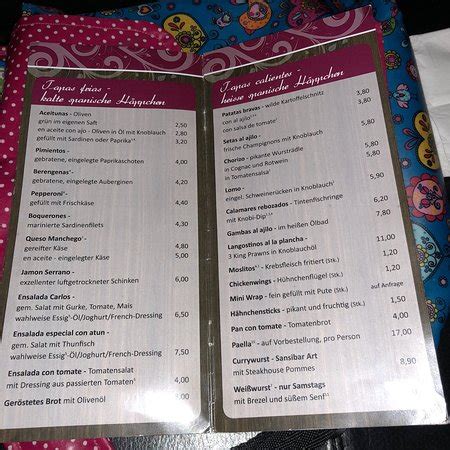 Tapas frias -
kalte spanische Häppchen
Aceitunas - Oliven
grün im eigenen Saft 2,50
en aceite con ajo - Oliven in Öl mit Knoblauch 2,80
gefüllt mit Sardinen oder Paprika 3,20
Pimientos -
gebratene, eingelegte Paprikaschoten 4,00
Berengenas -
gebratene, eingelegte Auberginen 4,20
Pepperoni -
gefüllt mit Frischkäse 4,40
Boquerones -
marinierte Sardinenfilets 4,80
Queso Manchego -
gereifter Käse 4,80
en aceite - eingelegter Käse 5,00
Jamon Serrano -
exzellenter luftgetrockneter Schinken 4,60
Ensalada Carlos -
gem. Salat mit Gurke, Tomate, Mais
wahlweise Essig-Öl/Joghurt/French-Dressing 6,50
Ensalada especial con atun -
gem. Salat mit Thunfisch
wahlweise Essig-Öl/Joghurt/French-Dressing 7,50
Ensalada con tomate - Tomatensalat
mit Dressing aus passierten Tomaten 4,00
Geröstetes Brot mit Olivenöl
Tapas calientes -
heisse spanische Häppchen
Patatas bravas - wilde Kartoffelschnitz
con al ajilo 3,80
con salsa de tomate 3,80
Setas al ajilo -
frische Champignons mit Knoblauch 5,80
Chorizo - pikante Wursträdle
in Cognac und Rotwein 5,80
in Tomatensalsa 5,80
Lomo -
eingel. Schweinerücken in Knoblauch 5,80
Calamares rebozados - Tintenfischringe
mit Knobi-Dip 6,20
Gambas al ajilo - im heißen Ölbad 7,80
Langostinos al la plancha -
3 King Prawns in Knoblauchöl 11,00
Moslitos - Krebsfleisch frittiert (Stk.) 1,20
Chickenwings - Hühnchenflügel (Stk.) 1,20
Mini Wrap - fein gefüllt mit Pute (Stk.) auf Anfrage
Hähnchensticks - pikant und fruchtig (Stk.) 1,50
Pan con tomate - Tomatenbrot 4,00
Paella - auf Vorbestellung, pro Person 17,00
Currywurst - Sansibar Art
mit Steakhouse Pommes 8,90
Weißwurst - nur Samstags
mit Brezel und süßem Senf 4,00